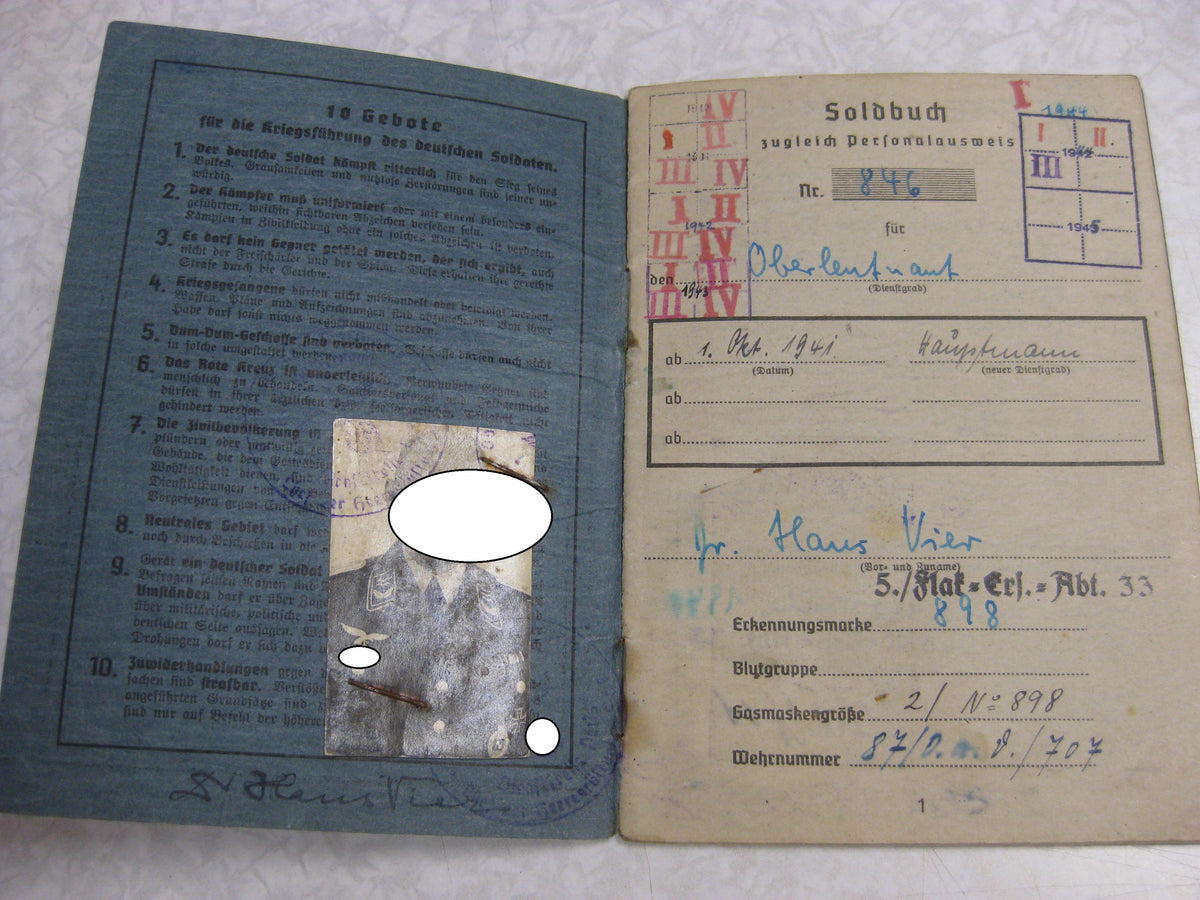 10 Gebote
für die Kriegsführung des deutschen Soldaten.
1. Der deutsche Soldat kämpft ritterlich für den Sieg seines
Volkes. Grausamkeiten und nutzlose Zerstörungen sind seiner un-
würdig.
2. Der Kämpfer muß uniformiert oder mit einem besonders ein-
geführten, weithin sichtbaren Abzeichen versehen sein.
Kämpfen in Zivilkleidung ohne ein solches Abzeichen ist verboten.
3. Es darf kein Gegner getötet werden, der sich ergibt, auch
nicht der Freischärler und der Spion. Diese erhalten ihre gerechte
Strafe durch die Gerichte.
4. Kriegsgefangene dürfen nicht mißhandelt oder beleidigt werden.
Waffen, Pläne und Aufzeichnungen sind abzunehmen. Von ihrer
Habe darf sonst nichts weggenommen werden.
5. Dum-Dum-Geschosse sind verboten. Geschosse dürfen auch nicht
in solche umgestaltet werden.
6. Das Rote Kreuz ist unverletzlich. Verwundete Gegner sind
menschlich zu behandeln. Sanitätspersonal und Feldgeistliche
dürfen in ihrer ärztlichen bzw. seelsorgerischen Tätigkeit nicht
gehindert werden.
7. Die Zivilbevölkerung ist
plündern oder mutwillig
Gebäude, die dem Gottesdienst
Wohltätigkeit dienen, sind
Dienstleistungen von
Vorgesetzten gegen
8. Neutrales Gebiet darf
noch durch Beschießen in die
9. Gerät ein deutscher Soldat
Befragen seinen Namen und
Umständen darf er über
über militärische, politische und
deutschen Seite aussagen.
Drohungen darf er sich dazu
10. Zuwiderhandlungen gegen
sachen sind strafbar. Verstöße
angeführten Grundsätze sind
sind nur auf Befehl der höheren
Dr Hans Vier
Soldbuch
zugleich Personalausweis
Nr. 846
für
den Oberleutnant
(Dienstgrad)
IV
I II
1941
III IV
I II
1942
III IV
I III
1943
III IV
I 1944
I II.
III
1945
ab 1. Okt. 1941 Hauptmann
(Datum) (neuer Dienstgrad)
ab
ab
Dr. Hans Vier
(Vor- und Zuname)
5./Flak-Ers.-Abt. 33
Erkennungsmarke 898
Blutgruppe
Gasmaskengröße 2/ No 898
Wehrnummer 87/ 707
1